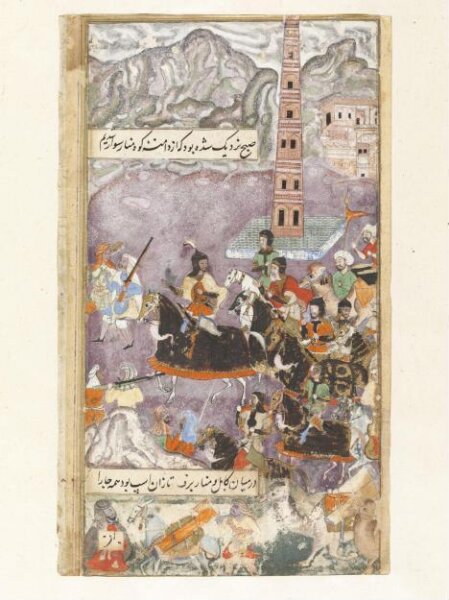 صبح نزدیک شده بود که از دامنه کوه منار
در میان کابل و منار برف تا ران اسپ بود همه جا را